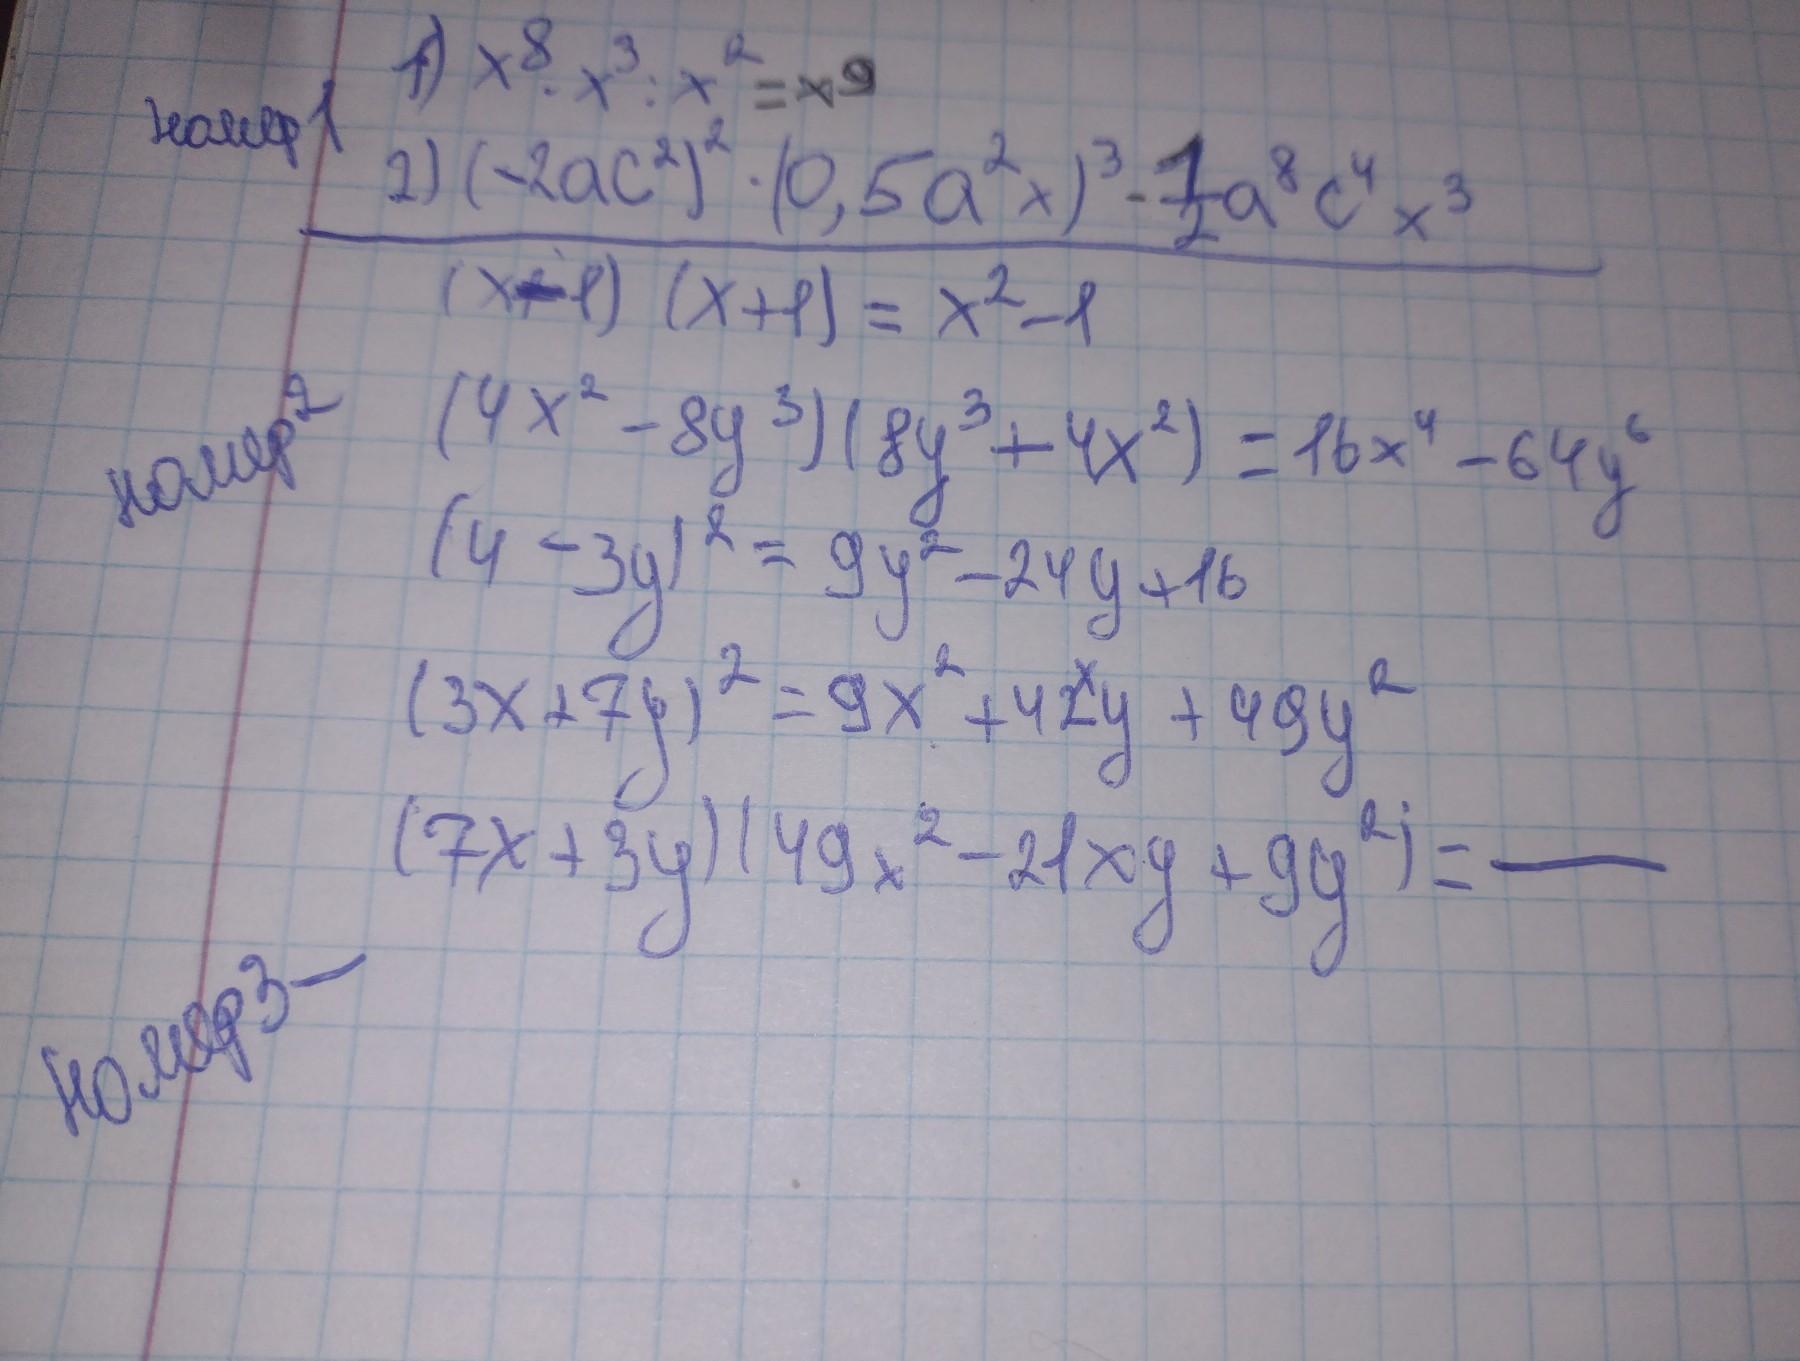 номер 1
1) x⁸ · x³ : x² = x⁹
2) (-2ac²)² · (0,5a²x)³ - 1/2 a⁸c⁴x³
номер 2
(x-1) (x+1) = x²-1
(4x² - 8y³)(8y³ + 4x²) = 16x⁴ - 64y⁶
(4 - 3y)² = 9y² - 24y + 16
(3x + 7y)² = 9x² + 42xy + 49y²
(7x + 3y)(49x² - 21xy + 9y²) = —
номер 3 —